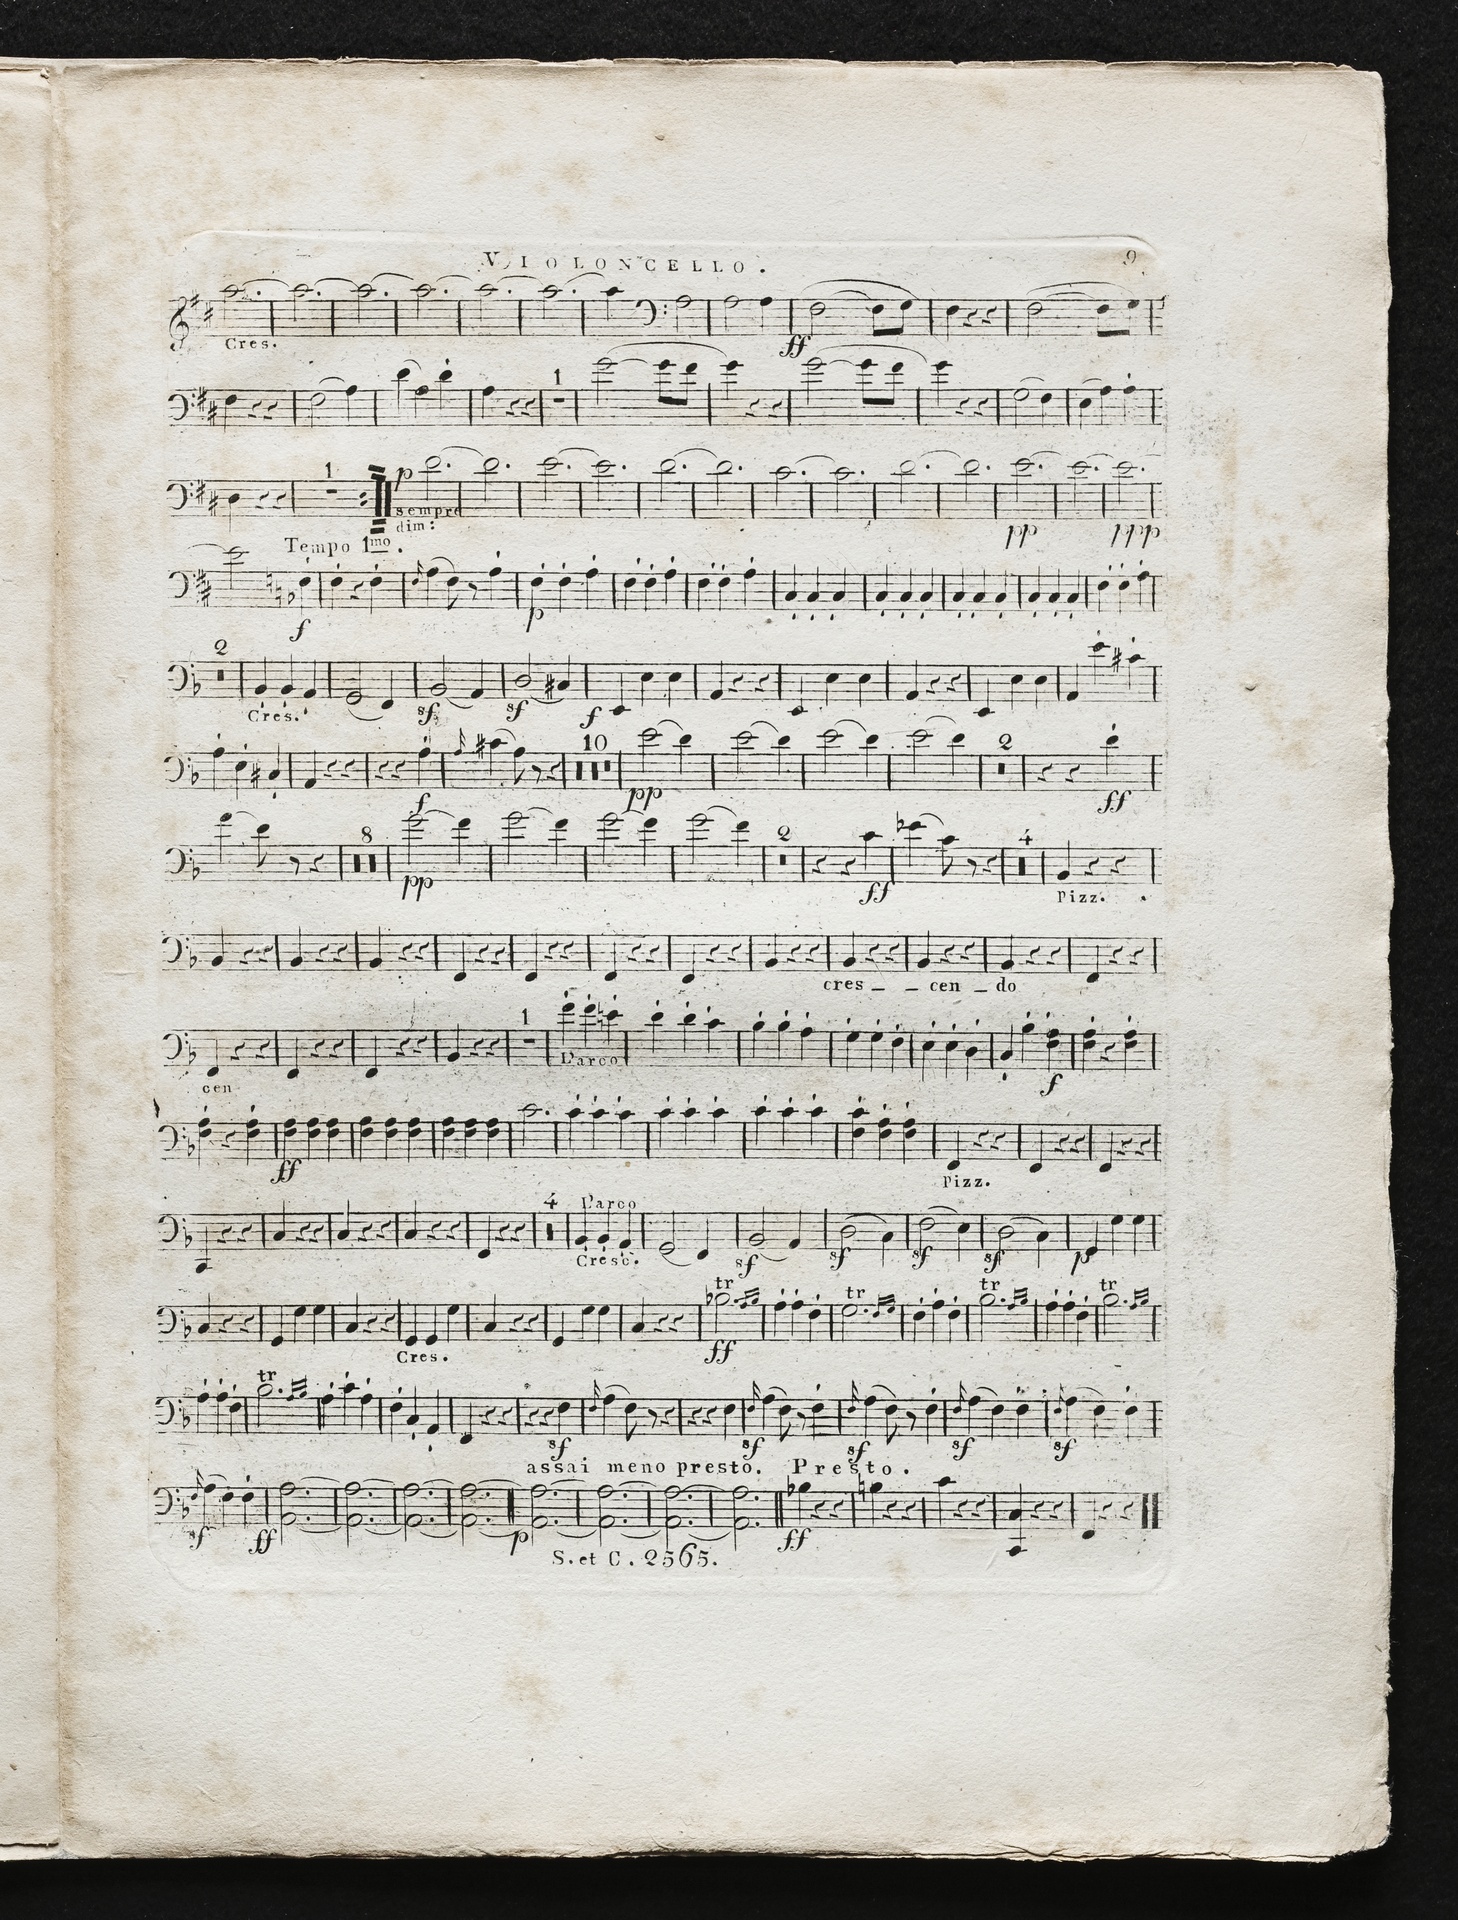 VIOLONCELLO.
9
Cres.
ff
1
1
p
sempre
dim:
pp
ppp
Tempo 1mo.
f
p
2
Cres.
sf
sf
f
10
2
f
pp
ff
8
2
4
pp
ff
Pizz.
cres _ _ cen _ do
1
L'arco
cen
f
ff
Pizz.
4
L'arco
Cresc.
sf
sf
sf
sf
p
tr
tr
tr
tr
Cres.
ff
tr
sf
sf
sf
sf
sf
assai meno presto. Presto.
sf
ff
p
ff
S. et C. 2565.